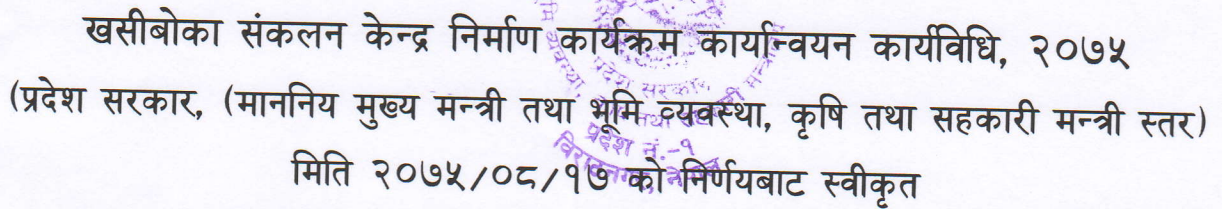 खसीबोका संकलन केन्द्र निर्माण कार्यक्रम कार्यान्वयन कार्यविधि, २०७५
(प्रदेश सरकार, (माननिय मुख्य मन्त्री तथा भूमि व्यवस्था, कृषि तथा सहकारी मन्त्री स्तर)
मिति २०७५/०८/१७ को निर्णयबाट स्वीकृत
प्रदेश नं.-१